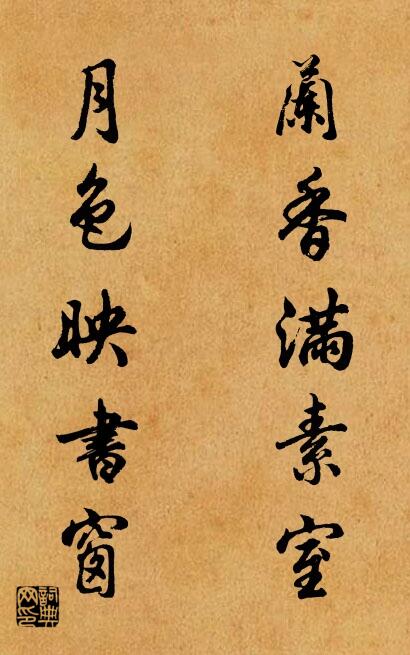 蘭香滿素室
月色映書窗
詞典
网印